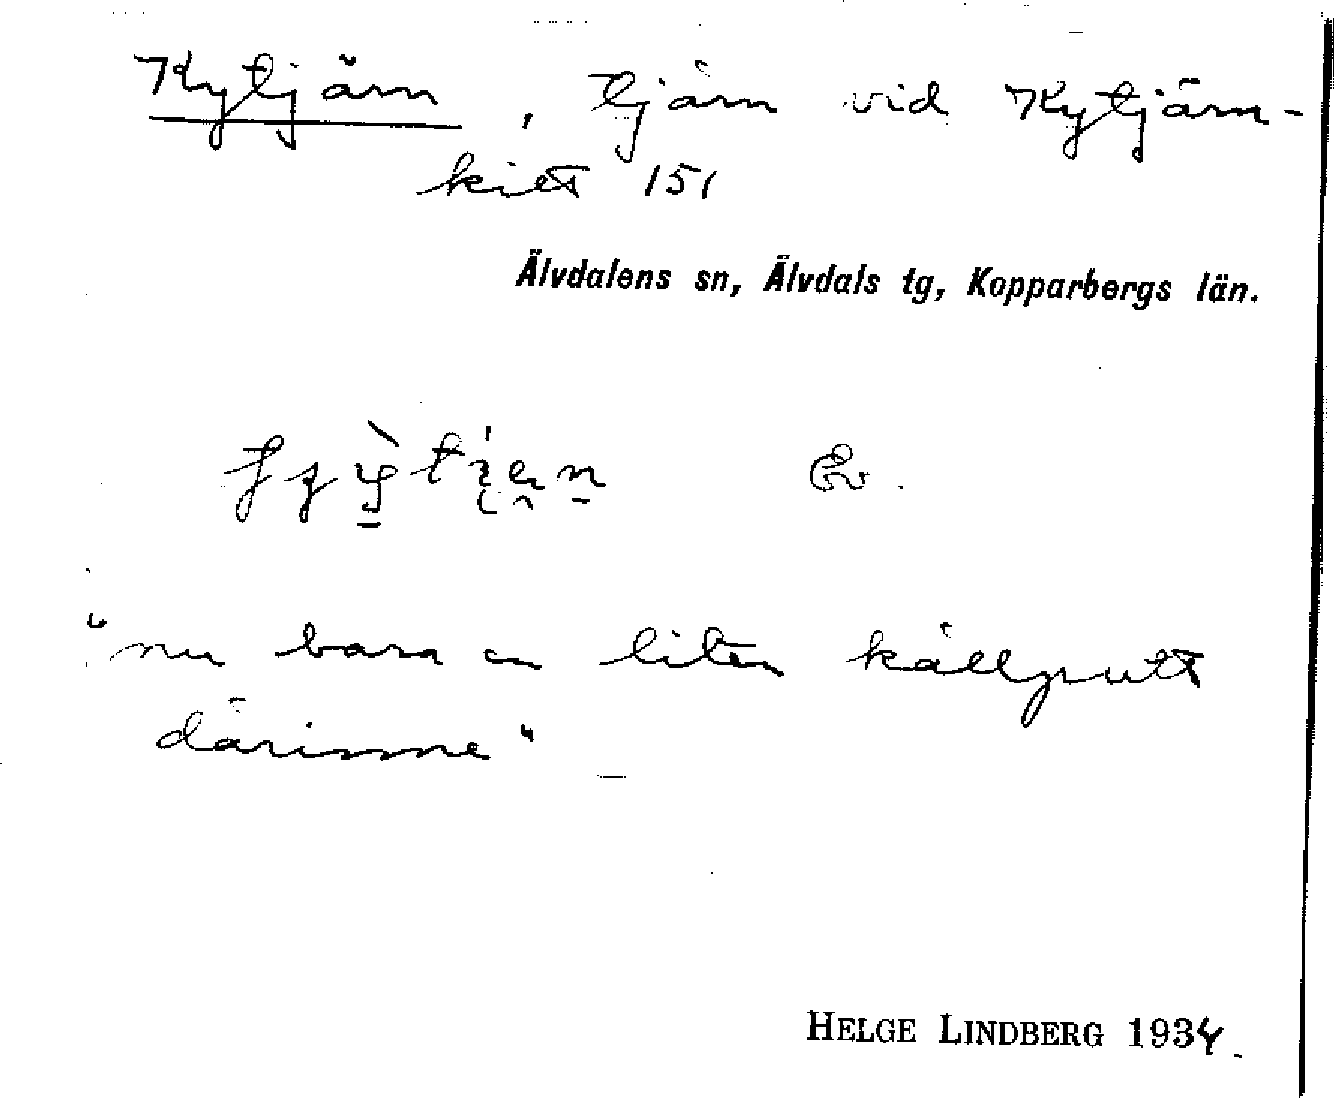 Kytjärn, tjärn vid Kytjärn-
kilt 151
Älvdalens sn, Älvdals tg, Kopparbergs län.
Ev.
"nu bara en liten källputt
därinne"
HELGE LINDBERG 1934